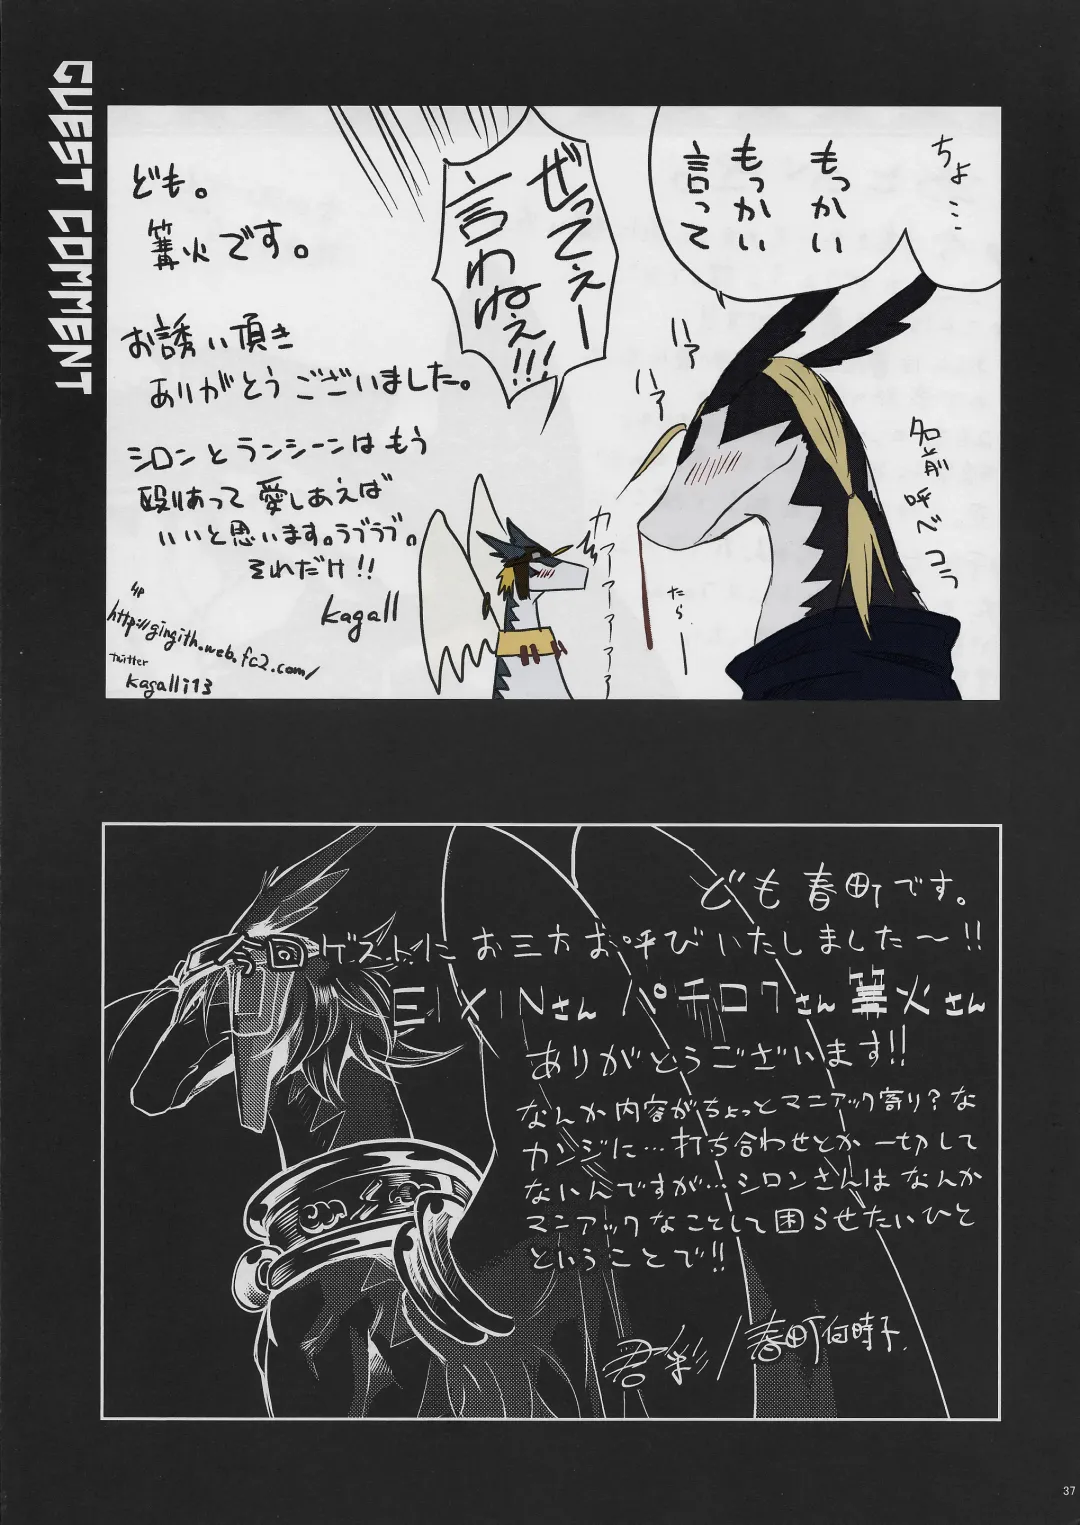 GUEST COMMENT
ちょ…
もっかい
もっかい
言って
ぜってぇー
言わねぇ!!!
ハァ
ハァ
名前
呼べ
コラ
たらー
カァァァァァァ
ども。
篝火です。
お誘い頂き
ありがとうございました。
シロンとランシーンはもう
殴りあって愛しあえば
いいと思います。ラブラブ。
それだけ!!
kagall
HP
http://gingith.web.fc2.com/
Twitter
kagall113
ども春町です。
ゲストにお三方お呼びいたしました〜!!
EIXINさん パチロクさん 篝火さん
ありがとうございます!!
なんか内容がちょっとマニアック寄り?な
カンジに…打ち合わせとか一切して
ないんですが…シロンさんはなんか
マニアックなことして困らせたいひと
ということで!!
君彩/春町何時子.
37